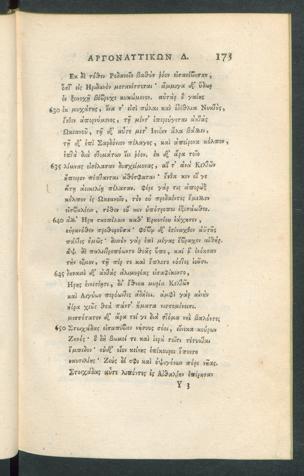 ΑΡΓΟΝΑΥΤΙΚΩΝ Δ. 173
Ἐκ δὲ τόθεν Ῥοδανοῖο βαθὺν ῥόον εἰσαπέβησαν,
ὅς τ' εἰς Ἠριδανὸν μετανίσσεται· ἄμμιγα δ' ὕδωρ
ἐν ξυνοχῇ βέβρυχε κυκώμενον. αὐτὰρ ὁ γαίης
630 ἐκ μυχάτης, ἵνα τ' εἰσὶ πύλαι καὶ ἐδέθλια Νυκτὸς,
ἔνθεν ἀπορνύμενος, τῇ μέν τ' ἐπερεύγεται ἀκτὰς
Ὠκεανοῦ, τῇ δ' αὖτε μετ' Ἰονίην ἅλα βάλλει,
τῇ δ' ἐπὶ Σαρδόνιον πέλαγος, καὶ ἀπείρονα κόλπον,
ἑπτὰ διὰ στομάτων ἵει ῥόον. ἐκ δ' ἄρα τοῖο
635 λίμνας εἰσέλασαν δυσχείμονας, αἵ τ' ἀνὰ Κελτῶν
ἤπειρον πέπτανται ἀθέσφατοι· ἔνθα κεν οἵ γε
ἄτῃ ἀεικελίῃ πέλασαν. φέρε γάρ τις ἀποῤῥὼξ
κόλπον ἐς Ὠκεανοῖο, τὸν οὐ προδαέντες ἔμελλον
εἰσβαλέειν, τόθεν οὔ κεν ὑπότροποι ἐξεσάωθεν.
640 ἀλλ' Ἥρη σκοπέλοιο καθ' Ἑρκυνίου ἰάχησεν,
οὐρανόθεν προθοροῦσα· φόβῳ δ' ἐτίναχθεν ἀϋτῆς
πάντες ὁμῶς· δεινὸν γὰρ ἐπὶ μέγας ἔβραχεν αἰθήρ.
ἂψ δὲ παλιντροπόωντο θεᾶς ὕπο, καί ῥ' ἐνόησαν
τὴν οἶμον, τῇ πέρ τε καὶ ἔπλετο νόστος ἰοῦσι.
645 δηναιοὶ δ' ἀκτὰς ἁλιμυρέας εἰσαφίκοντο,
Ἥρης ἐννεσίῃσι, δι' ἔθνεα μυρία Κελτῶν
καὶ Λιγύων περόωντες ἀδήϊοι. ἀμφὶ γὰρ αἰνὴν
ἠέρα χεῦε θεὰ πάντ' ἤματα νισσομένοισι.
μεσσότατον δ' ἄρα τοί γε διὰ στόμα νηῒ βαλόντες
650 Στοιχάδας εἰσαπέβαν νήσους σόοι, εἵνεκα κούρων
Ζηνός· ὃ δὴ βωμοί τε καὶ ἱερὰ τοῖσι τέτυκται
ἔμπεδον· οὐδ' οἶον κείνης ἐπίκουροι ἕποντο
ναυτιλίης· Ζεὺς δέ σφι καὶ ὀψιγόνων πόρε νῆας.
Στοιχάδας αὖτε λιπόντες ἐς Αἰθαλίην ἐπέρησαν
Y 3